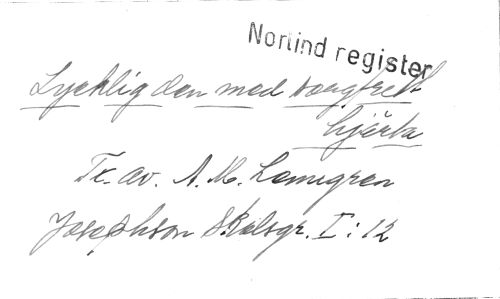 Norlind register
Lycklig den med sorgfritt
hjärta
Tr. av. A. M. Lenngren
Josephson Skålsgr. I: 12